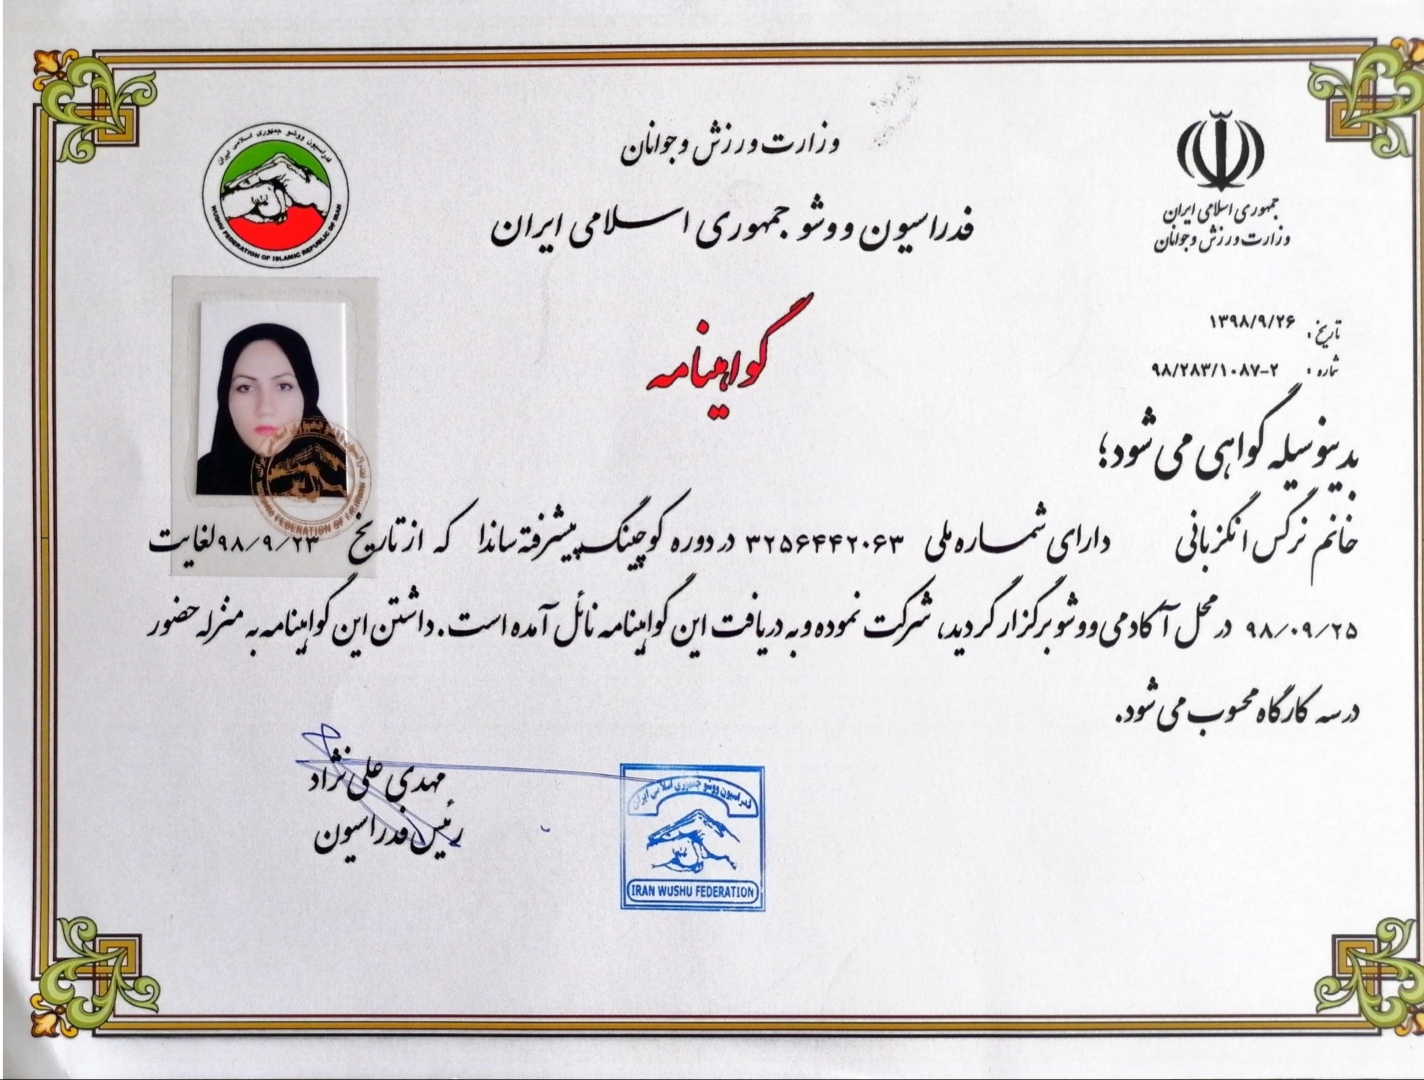 وزارت ورزش و جوانان
فدراسیون ووشو جمهوری اسلامی ایران
جمهوری اسلامی ایران
وزارت ورزش و جوانان
فدراسیون ووشو جمهوری اسلامی ایران
WUSHU FEDERATION OF ISLAMIC REPUBLIC OF IRAN
گواهینامه
تاریخ: ۱۳۹۸/۹/۲۶
شماره: ۹۸/۲۸۳/۱۰۸۷-۲
بدینوسیله گواهی می شود؛
خانم نرگس انگزبانی دارای شماره ملی ۳۲۵۶۴۴۲۰۶۳ در دوره کوچینگ پیشرفته ساندا که از تاریخ ۹۸/۹/۲۳ لغایت
۹۸/۰۹/۲۵ در محل آکادمی ووشو برگزار گردید، شرکت نموده و به دریافت این گواهینامه نائل آمده است. داشتن این گواهینامه به منزله حضور
در سه کارگاه محسوب می شود.
مهدی علی نژاد
رئیس فدراسیون
فدراسیون ووشو جمهوری اسلامی ایران
IRAN WUSHU FEDERATION